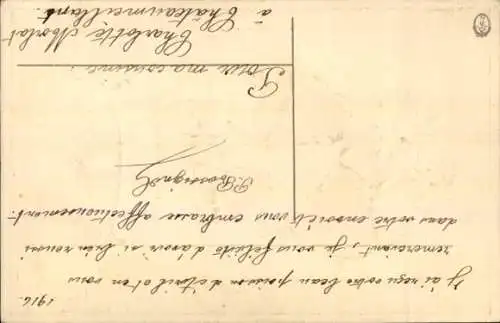 1916
J'ai reçu votre beau poisson d'avril et en vous
remerciant, je vous félicite d'avoir si bien réussi
dans votre envoi et vous embrasse affectueusement.
P. Rossignol
Pour ma cousine
Charlotte Morlat
à Châteaumeillant.